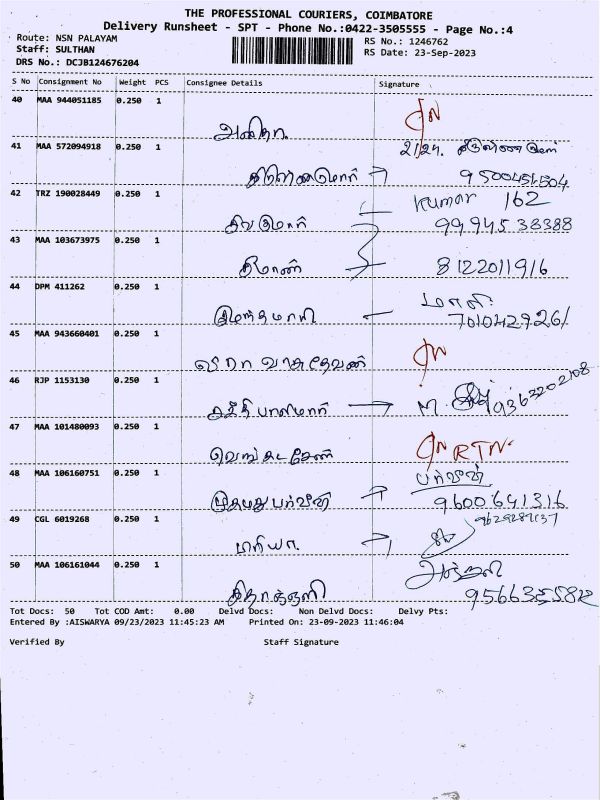 THE PROFESSIONAL COURIERS, COIMBATORE
Delivery Runsheet - SPT - Phone No.:0422-3505555 - Page No.:4
Route: NSN PALAYAM
RS No.: 1246762
Staff: SULTHAN
RS Date: 23-Sep-2023
DRS No.: DCJB124676204
S No Consignment No Weight PCS Consignee Details Signature
40 MAA 944051185 0.250 1
அனிதா
41 MAA 572094918 0.250 1
9500451504
42 TRZ 190028449 0.250 1 Kumar 162
சிவகுமார் 9994538388
43 MAA 103673975 0.250 1
8122011916
44 DPM 411262 0.250 1
7010429261
45 MAA 943660401 0.250 1
வாசுதேவன்
46 RJP 1153130 0.250 1
M. 9363202108
47 MAA 101480093 0.250 1
RTN
48 MAA 106160751 0.250 1 பர்வீன்
பர்வீன் 9600641316
49 CGL 6019268 0.250 1
மரியா
50 MAA 106161044 0.250 1
Tot Docs: 50 Tot COD Amt: 0.00 Delvd Docs: Non Delvd Docs: Delvy Pts:
Entered By :AISWARYA 09/23/2023 11:45:23 AM Printed On: 23-09-2023 11:46:04
Verified By Staff Signature